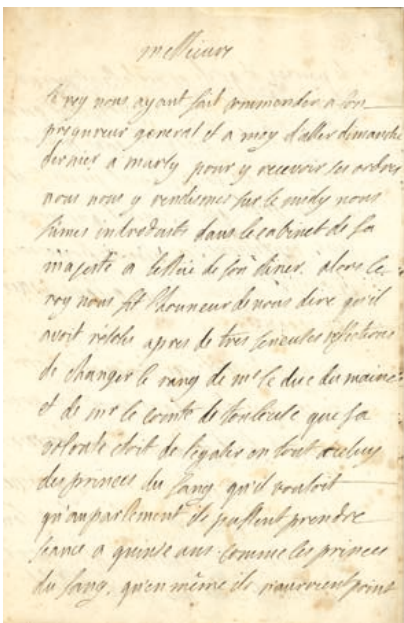 messieurs
le roy nous ayant fait commander a son
procureur general et a moy d'aller dimanche
dernier a marly pour y recevoir ses ordres
nous nous y rendismes sur le midy nous
fumes introduits dans le cabinet de sa
majesté a l'issüe de son diner. alors le
roy nous fit l'honneur de nous dire qu'il
avoit resolu apres de tres serieuses reflections
de changer le rang de mr le duc du maine
et de mr le comte de toulouse que sa
volonte étoit de l'egaler en tout a celuy
des princes du sang qu'il vouloit
qu'au parlement ils pussent prendre
seance a quinse ans comme les princes
du sang, qu'en même ils n'auroient point